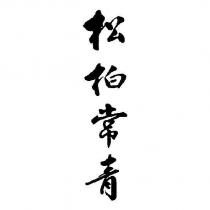 松柏常青